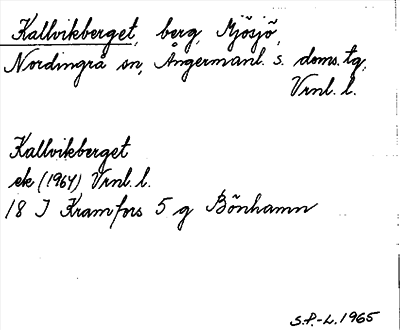 Kallvikberget, berg, Mjösjö,
Nordingrå sn, Ångermanl. s. doms. tg,
Vrnl. l.
Kallvikberget
ek (1964) Vrnl. l.
18 J Kramfors 5 g Bönhamn
S.P.-L. 1965